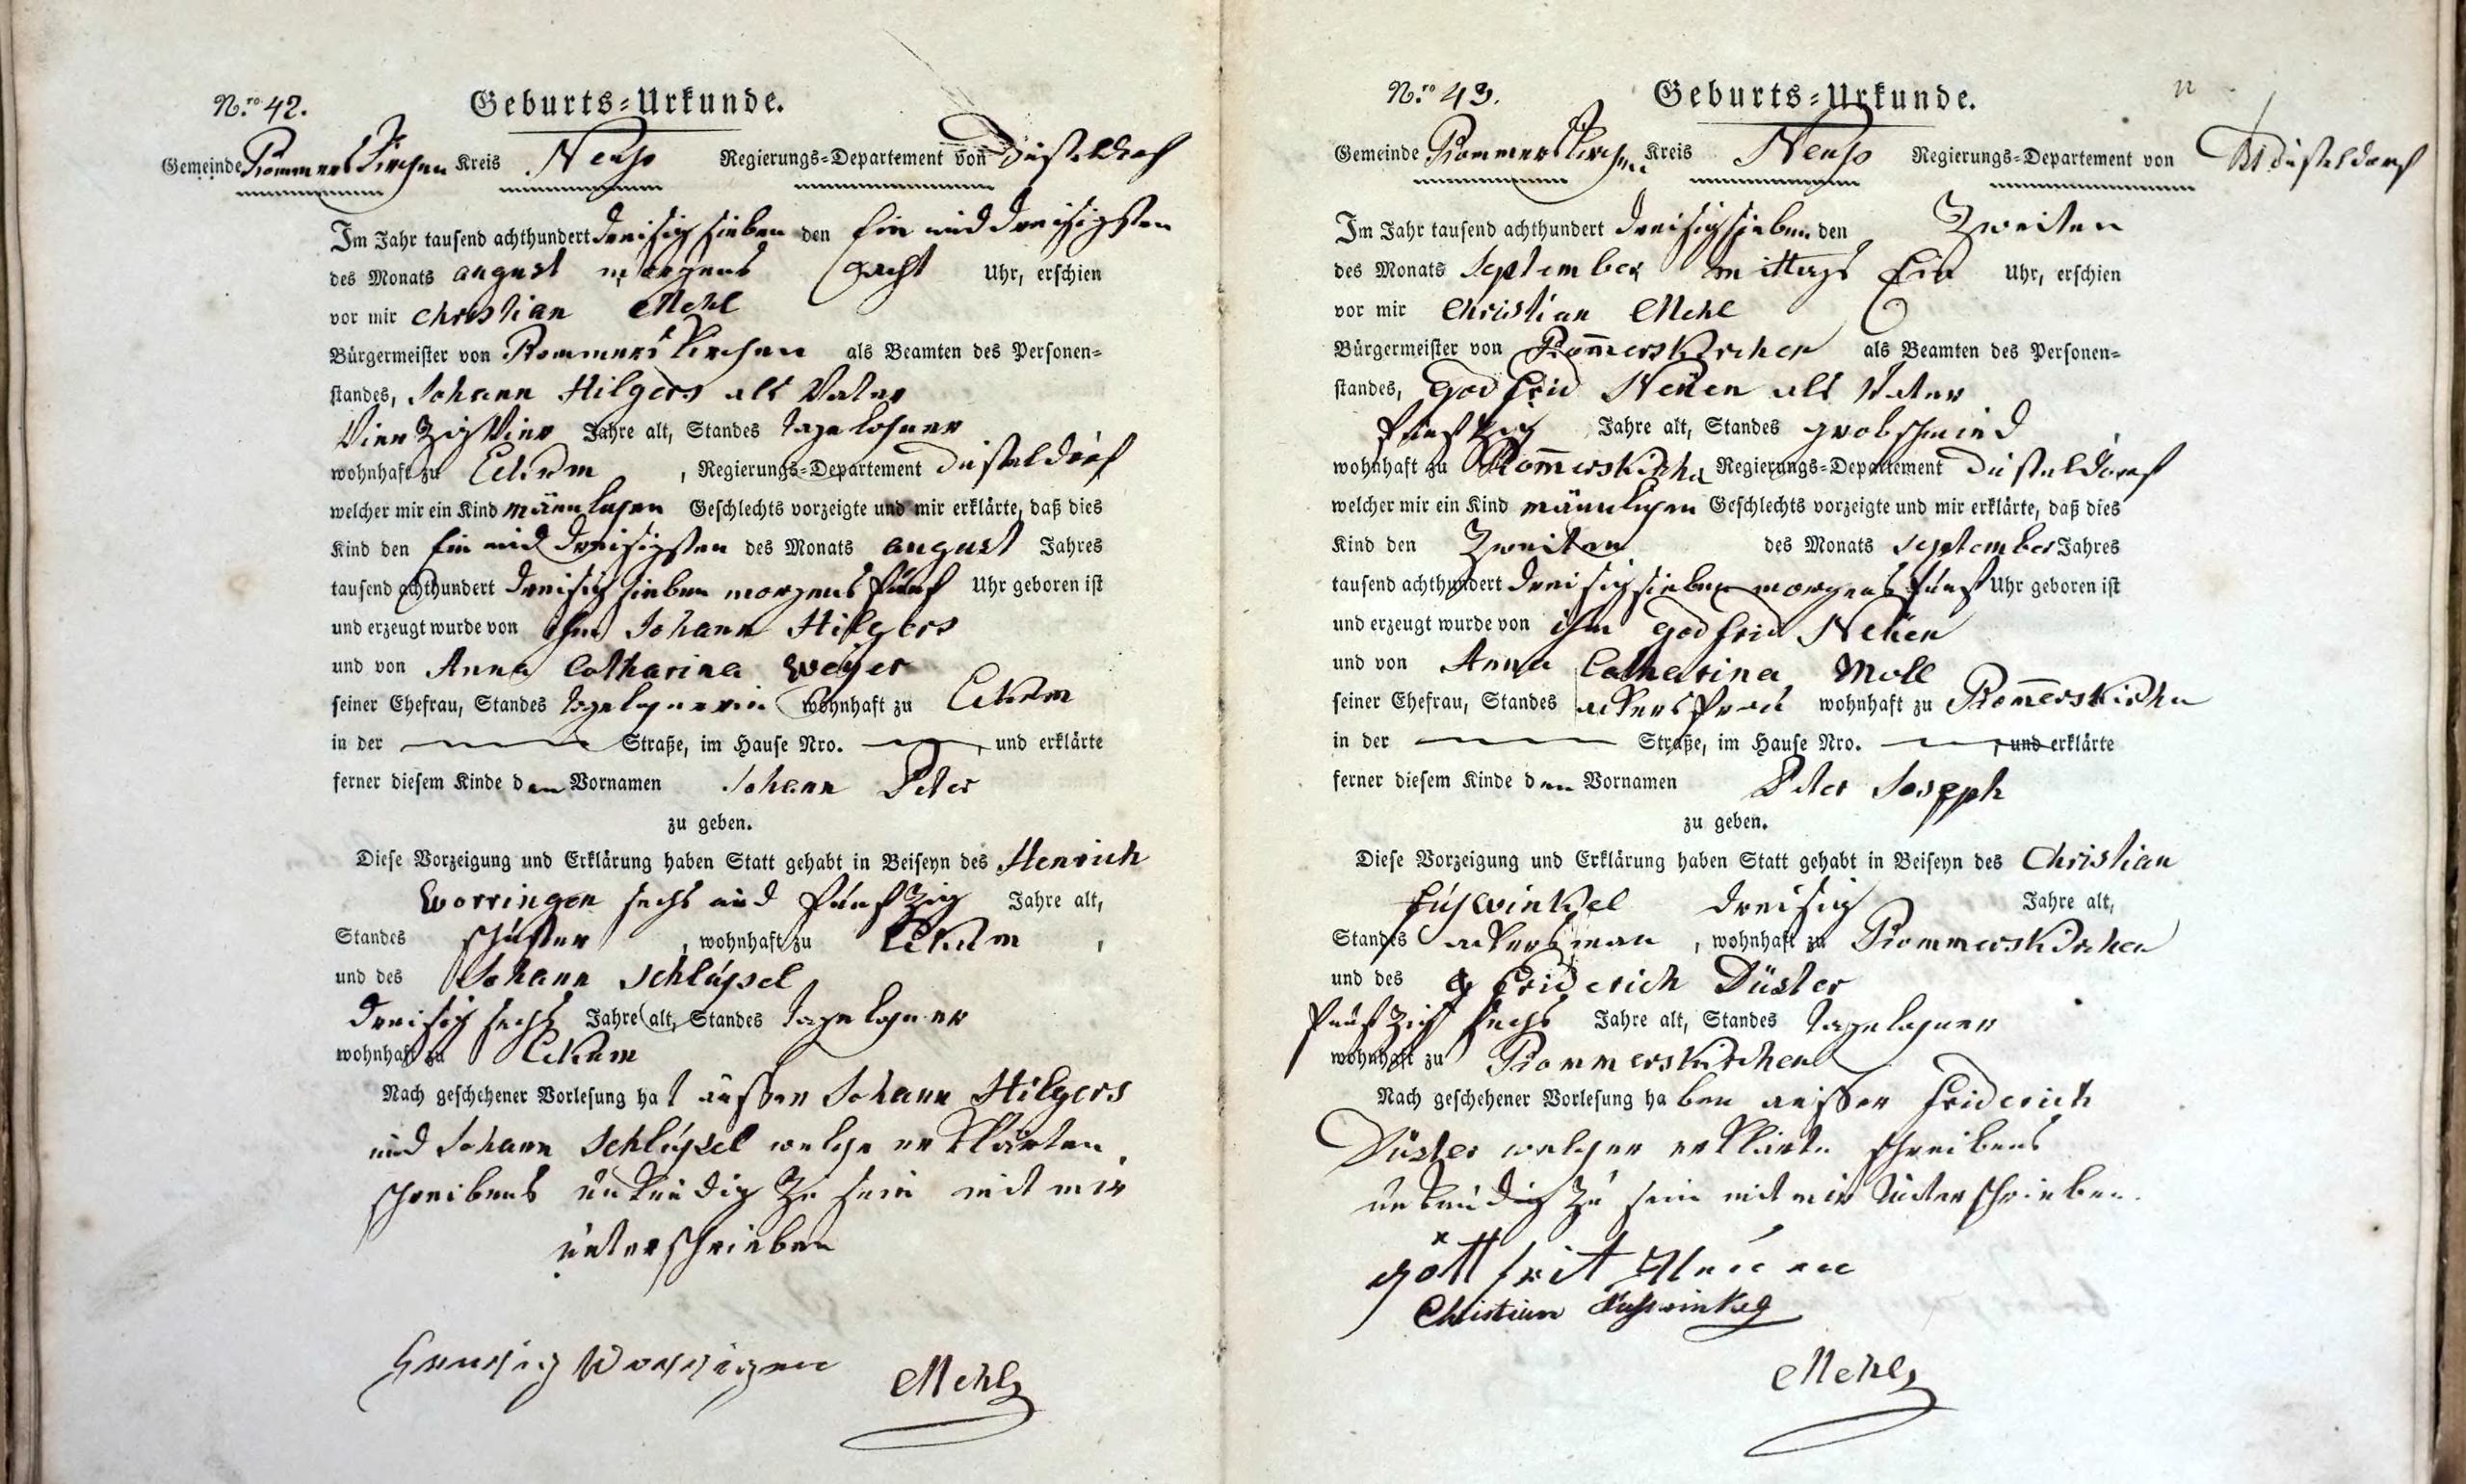 N.ro 42.
Geburts=Urkunde.
Gemeinde Rommerskirchen Kreis Neuss Regierungs=Departement von Düsseldorf
Im Jahr tausend achthundert dreisig sieben den Ein und dreisigsten
des Monats august morgens acht Uhr, erschien
vor mir Christian Mehl
Bürgermeister von Rommerskirchen als Beamten des Personen=
standes, Johann Hilgers als Vater
Vierzig Vier Jahre alt, Standes Tagelohner
wohnhaft zu Eckum, Regierungs=Departement Düsseldorf
welcher mir ein Kind männlichen Geschlechts vorzeigte und mir erklärte, daß dies
Kind den Ein und dreisigsten des Monats august Jahres
tausend achthundert dreisig sieben morgens fünf Uhr geboren ist
und erzeugt wurde von ihm Johann Hilgers
und von Anna Catharina Weyer
seiner Ehefrau, Standes Tagelohnerin wohnhaft zu Eckum
in der Straße, im Hause Nro. , und erklärte
ferner diesem Kinde den Vornamen Johann Peter
zu geben.
Diese Vorzeigung und Erklärung haben Statt gehabt in Beiseyn des Henrich
Worringen sechs und fünfzig Jahre alt,
Standes schuster, wohnhaft zu Eckum,
und des Johann Schlüssel
dreisig sechs Jahre alt, Standes Tagelohner
wohnhaft zu Eckum
Nach geschehener Vorlesung hat ausser Johann Hilgers
und Johann Schlüssel welche erklärten
schreibens unkundig zu sein mit mir
unterschrieben
Worringen Mehl
N.ro 43.
Geburts=Urkunde.
Gemeinde Rommerskirchen Kreis Neuss Regierungs=Departement von Düsseldorf
Im Jahr tausend achthundert dreisig sieben den Zweiten
des Monats September mittags Ein Uhr, erschien
vor mir Christian Mehl
Bürgermeister von Rom̄erskirchen als Beamten des Personen=
standes, Godfrid Neuen als Vater
fünfzig Jahre alt, Standes grobschmied
wohnhaft zu Rom̄erskirchen Regierungs=Departement Düsseldorf
welcher mir ein Kind männlichen Geschlechts vorzeigte und mir erklärte, daß dies
Kind den Zweiten des Monats September Jahres
tausend achthundert dreisig sieben morgens fünf Uhr geboren ist
und erzeugt wurde von ihm Godfrid Neuen
und von Anna Catharina Moll
seiner Ehefrau, Standes ackersfrau wohnhaft zu Rom̄erskirchen
in der Straße, im Hause Nro. , und erklärte
ferner diesem Kinde den Vornamen Peter Joseph
zu geben.
Diese Vorzeigung und Erklärung haben Statt gehabt in Beiseyn des Christian
Fuswinkel dreisig Jahre alt,
Standes ackersman, wohnhaft zu Rommerskirchen
und des Friderich Düster
fünfzig sechs Jahre alt, Standes Tagelohner
wohnhaft zu Rommerskirchen
Nach geschehener Vorlesung haben ausser Friderich
Düster welcher erklärte schreibens
unkundig zu sein mit mir unterschrieben.
Gottfrit Neuen
Christian Fusswinkel
Mehl